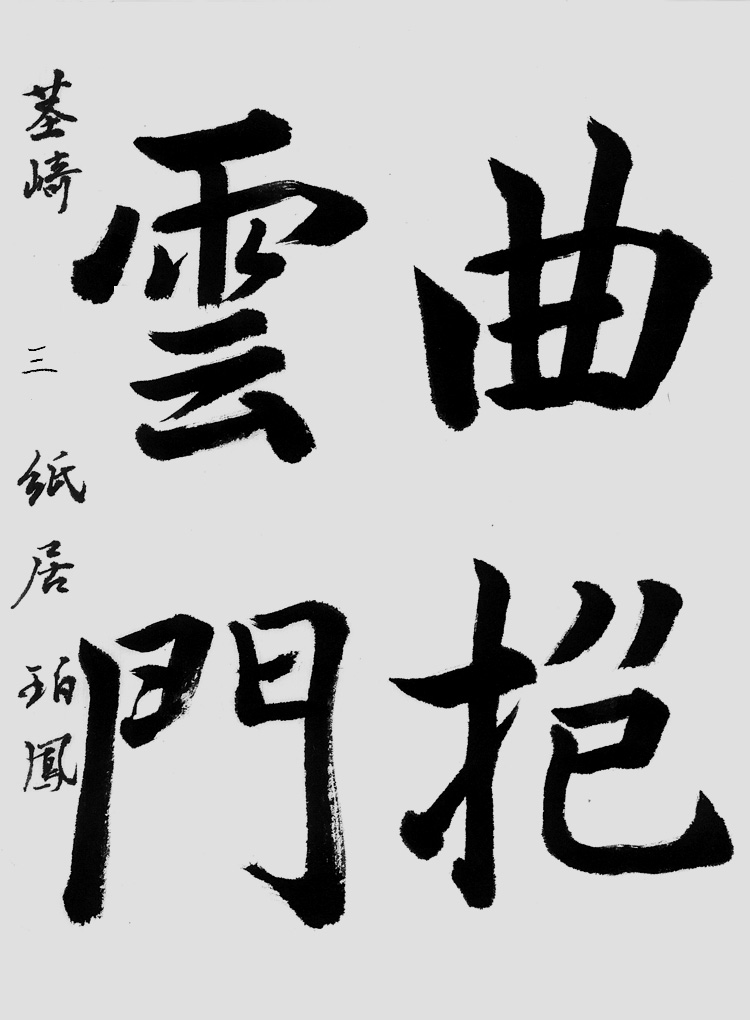 曲抱
雲門
茎崎 三 紙居珀鳳